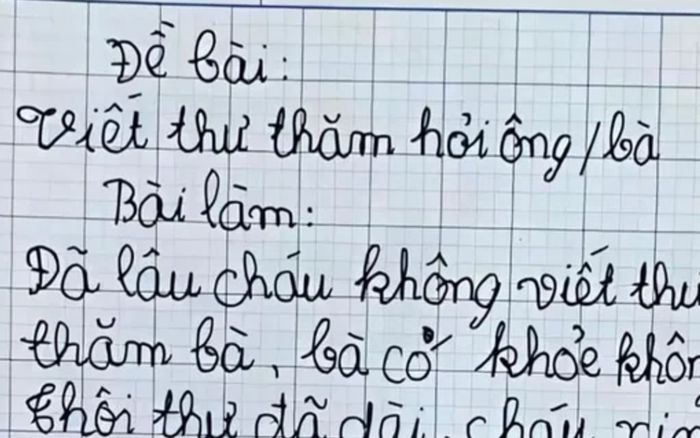 Đề bài:
Viết thư thăm hỏi ông/bà
Bài làm:
Đã lâu cháu không viết thư
thăm bà, bà có khỏe khôn
Thôi thư đã dài, cháu